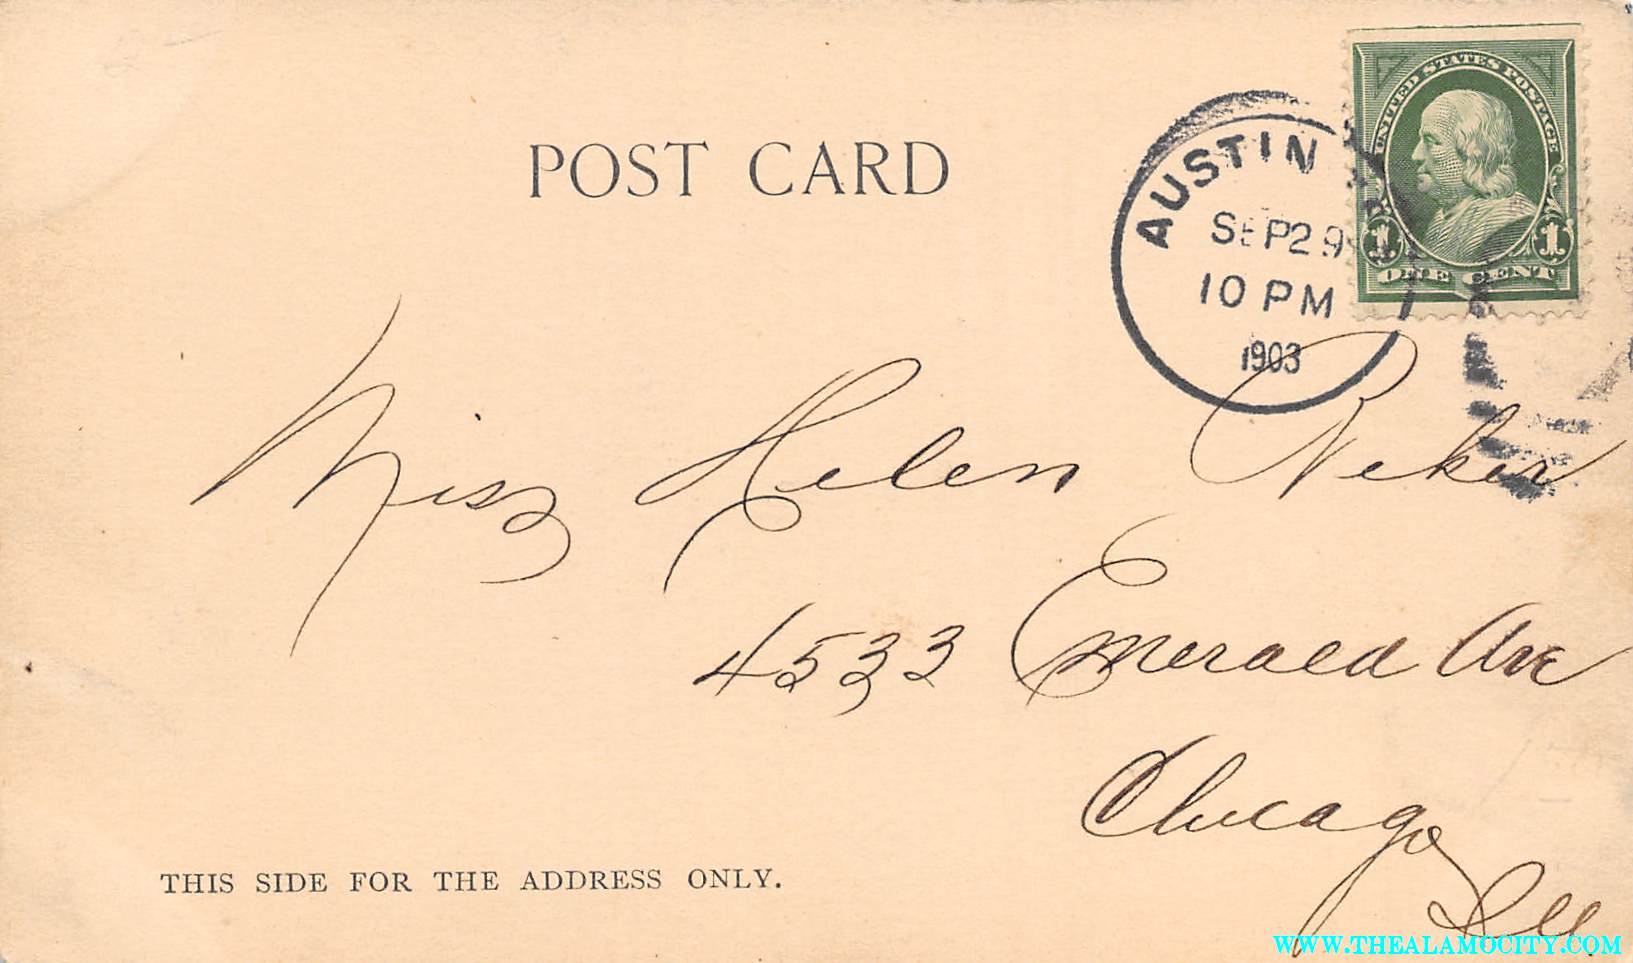 POST CARD
UNITED STATES POSTAGE
1 1
ONE CENT
AUSTIN
SEP 29
10 PM
1903
Miss Helen Neker
4533 Emerald Ave
Chicago
Ill
THIS SIDE FOR THE ADDRESS ONLY.
WWW.THEALAMOCITY.COM